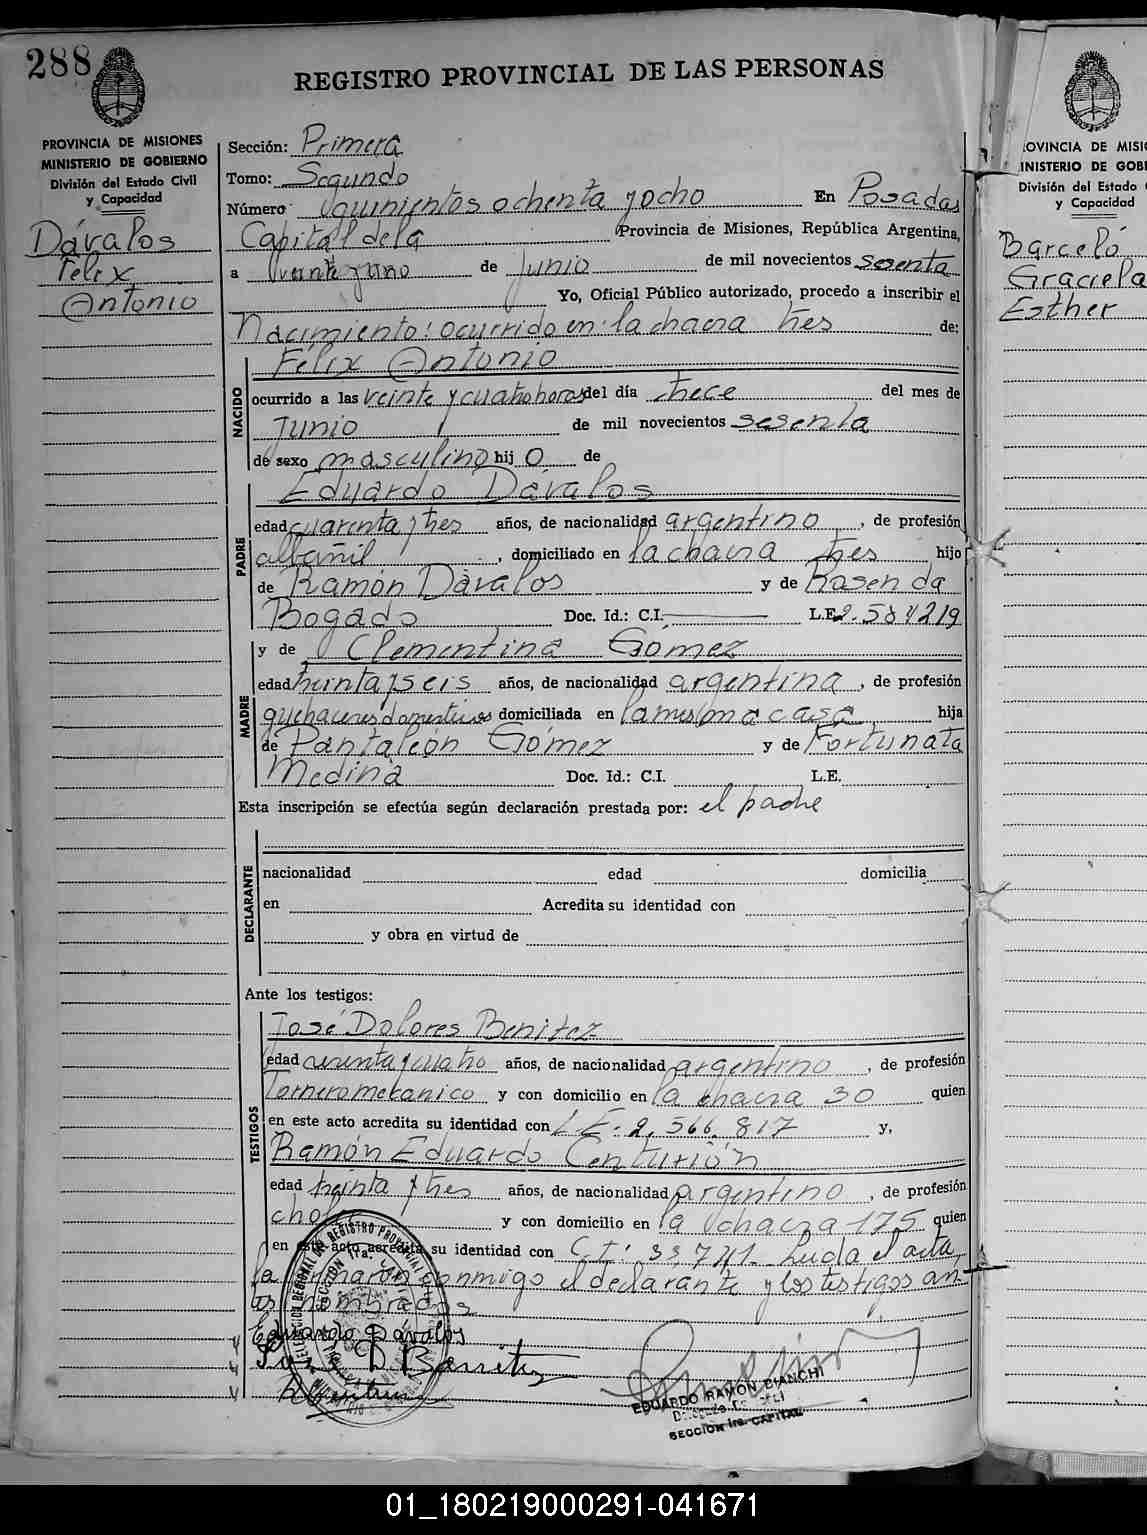 288
REGISTRO PROVINCIAL DE LAS PERSONAS
PROVINCIA DE MISIONES
MINISTERIO DE GOBIERNO
División del Estado Civil
y Capacidad
Dávalos
Felix
Antonio
Sección: Primera
Tomo: Segundo
Número quinientos ochenta y ocho En Posadas
Capital de la Provincia de Misiones, República Argentina,
a veinte y uno de Junio de mil novecientos sesenta
Yo, Oficial Público autorizado, procedo a inscribir el
Nacimiento: ocurrido en: la chacra tres de:
NACIDO
Félix Antonio
ocurrido a las veinte y cuatro horas del día trece del mes de
Junio de mil novecientos sesenta
de sexo masculino hijo de
PADRE
Eduardo Dávalos
edad cuarenta y tres años, de nacionalidad argentino, de profesión
albañil, domiciliado en la chacra tres hijo
de Ramón Dávalos y de Rosenda
Bogado Doc. Id.: C.I. L.E. 2.584219
MADRE
y de Clementina Gómez
edad treinta y seis años, de nacionalidad argentina, de profesión
quehaceres domesticos domiciliada en la misma casa hija
de Pantaleón Gómez y de Fortunata
Medina Doc. Id.: C.I. L.E.
Esta inscripción se efectúa según declaración prestada por: el padre
DECLARANTE
nacionalidad edad domicilia
en Acredita su identidad con
y obra en virtud de
Ante los testigos:
TESTIGOS
José Dolores Benitez
edad y cuatro años, de nacionalidad argentino, de profesión
Tornero mecanico y con domicilio en la chacra 30 quien
en este acto acredita su identidad con L.E. 2.566.817 y,
Ramón Eduardo Centurión
edad treinta y tres años, de nacionalidad argentino, de profesión
y con domicilio en la chacra 175 quien
en este acto acredita su identidad con C.I: 33,741. Leida el acta
la firmaron conmigo el declarante y los testigos an-
tes nombrados
Eduardo Dávalos
José D. Benitez
EDUARDO RAMON BIANCHI
SECCION 1ra. CAPITAL
OVINCIA DE MISI
INISTERIO DE GOBI
División del Estado
y Capacidad
Barceló
Graciela
Esther
01_180219000291-041671